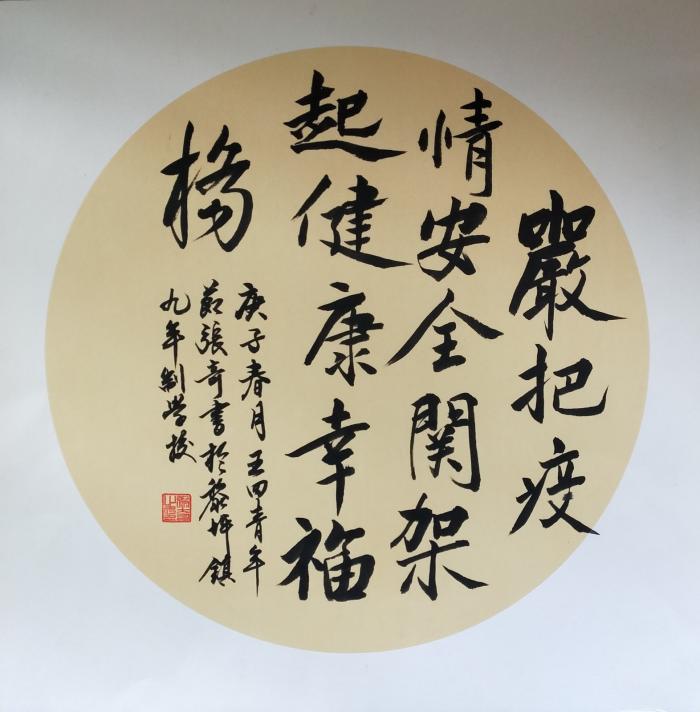 嚴把疫
情安全関架
起健康幸福
橋
庚子春月五四青年
節張奇書於坪鎮
九年制學校